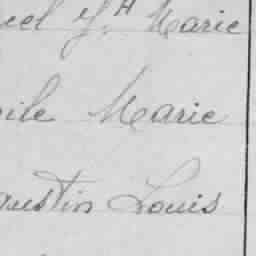 uel Y.H Marie
oile Marie
gustin Louis